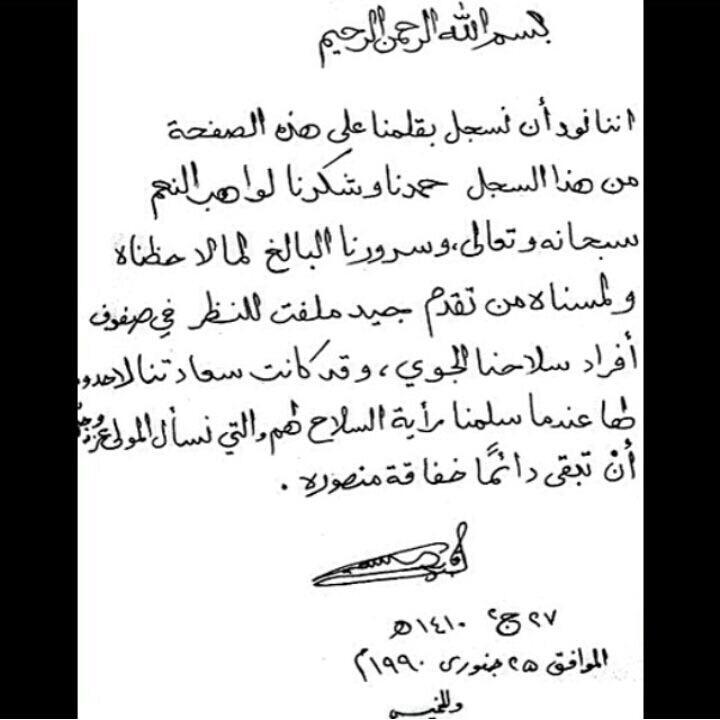 بسم الله الرحمن الرحيم
اننا نود أن نسجل بقلمنا على هذه الصفحة
من هذا السجل حمدنا وشكرنا لواهب النعم
سبحانه وتعالى، وسرورنا البالغ لما لاحظناه
ولمسناه من تقدم جيد ملفت للنظر في صفوف
أفراد سلاحنا الجوي، وقد كانت سعادتنا لا حدود
لها عندما سلمنا رأية السلاح لهم والتي نسأل المولى عز وجل
أنْ تبقى دائمًا خفاقة منصوره.
٢٧ ج٢ ١٤١٠ه
الموافق ٢٥ جنورى ١٩٩٠م